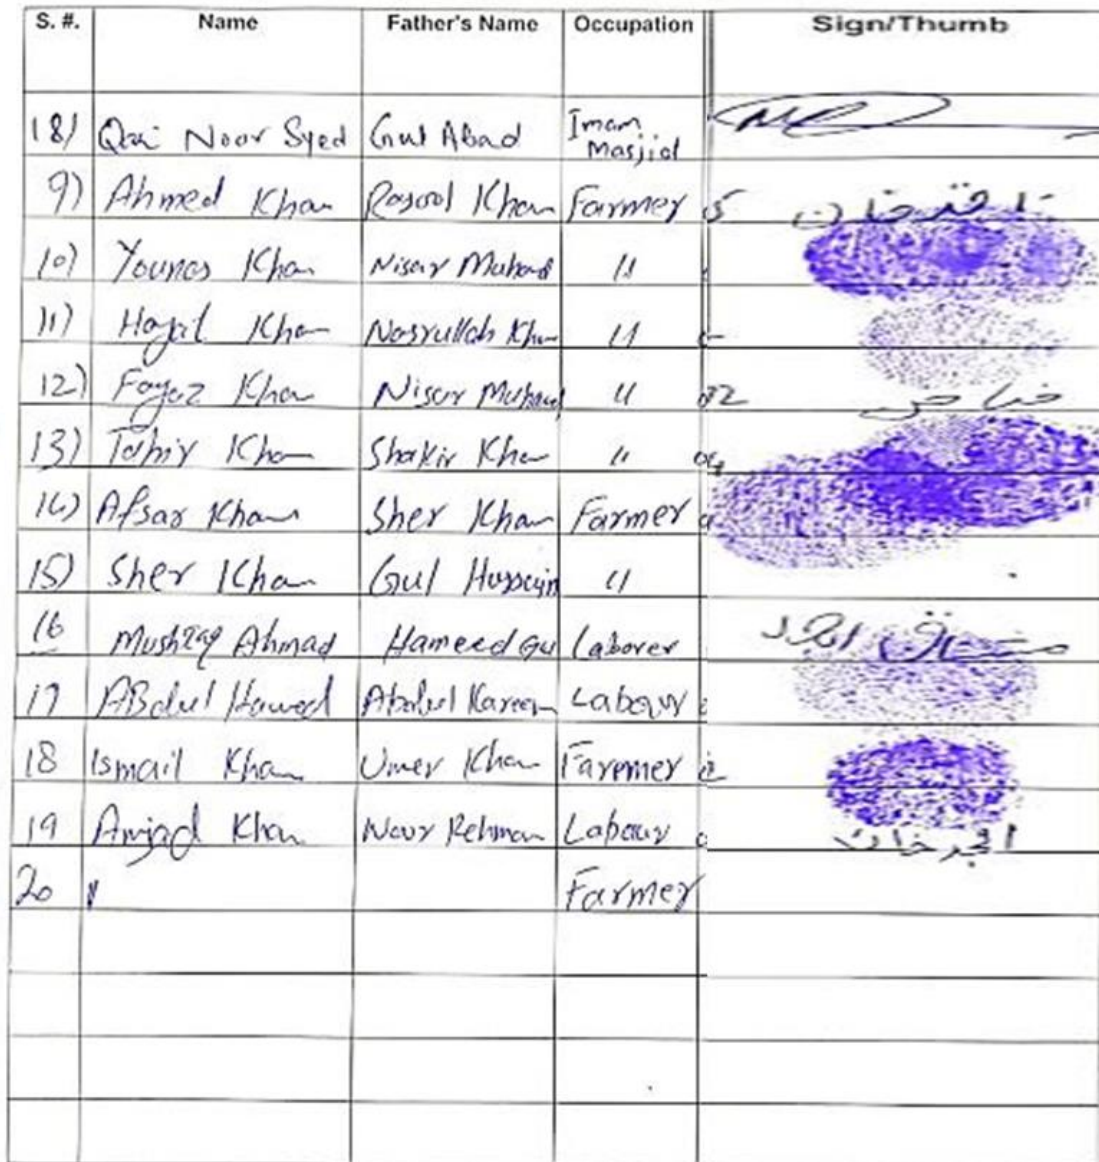 S. #. Name Father's Name Occupation Sign/Thumb
18) Qari Noor Syed Gul Abad Imam Masjid
9) Ahmed Khan Rasool Khan Farmer
10) Younas Khan Nisar Muhad "
11) Khan Nasrullah Khan "
12) Fayaz Khan Nisar Muhamd "
13) Tahir Khan Shakir Khan "
14) Afsar Khan Sher Khan Farmer
15) Sher Khan Gul Hussain "
16 Mushtaq Ahmad Hameed Gul Laborer مشتاق احمد
17 ABdul Hameed Abdul Kareem Labour
18 Ismail Khan Umer Khan Faremer
19 Amjad Khan Noor Rehman Labour امجد خان
20 Farmer